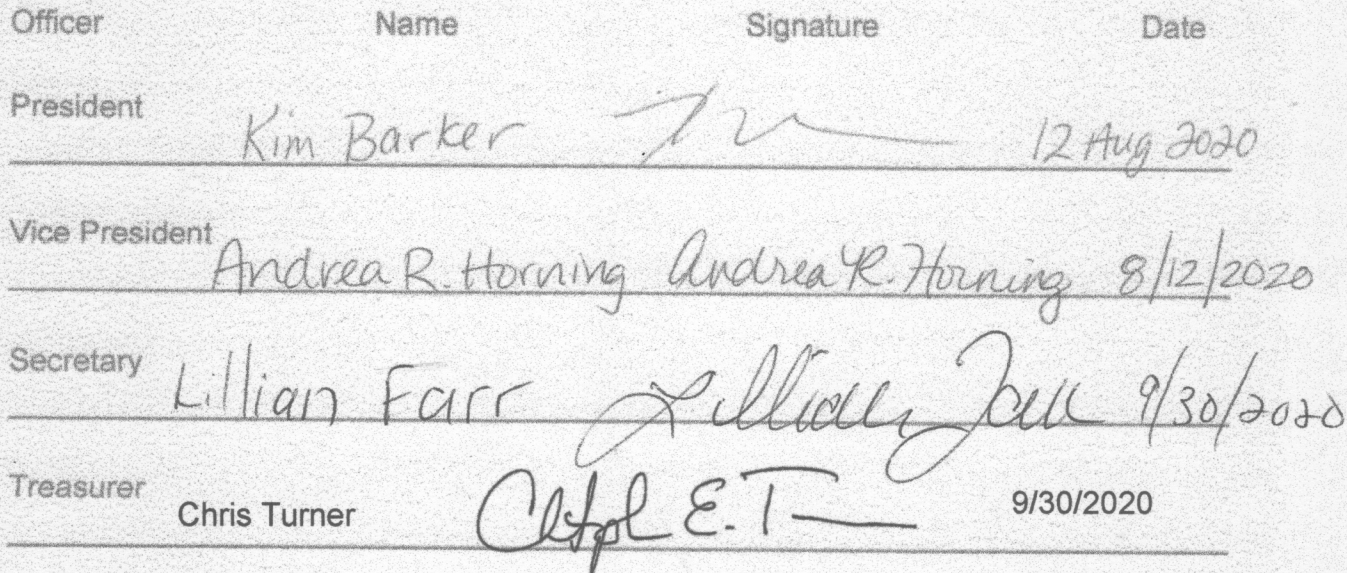 Officer Name Signature Date
President Kim Barker 12 Aug 2020
Vice President Andrea R. Horning Andrea R. Horning 8/12/2020
Secretary Lillian Farr Lillian Farr 9/30/2020
Treasurer Chris Turner E. T 9/30/2020